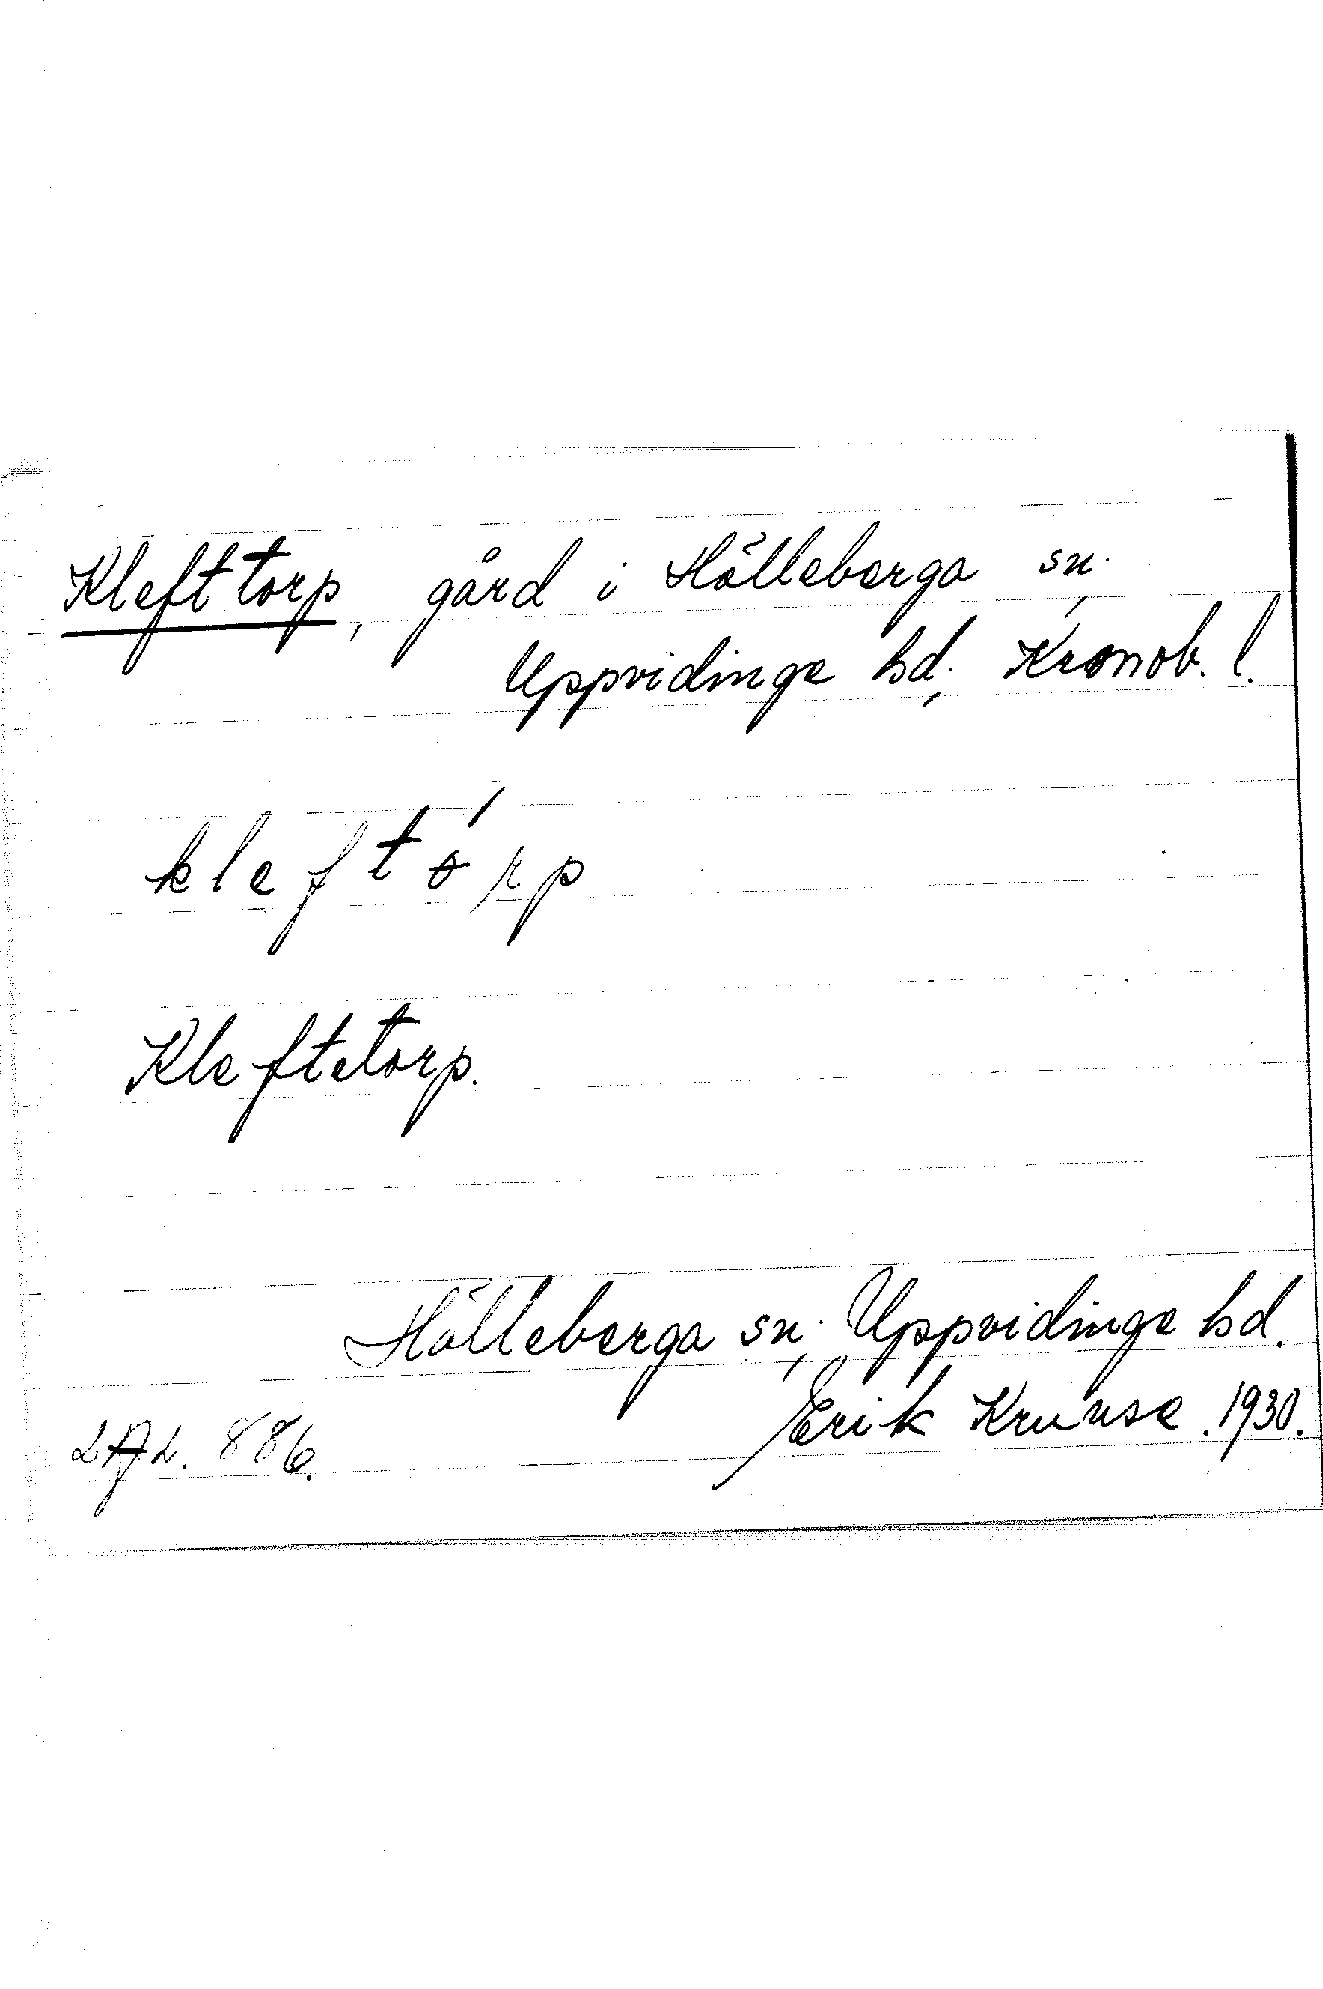 Klefttorp, gård i Hälleberga sn.,
Uppvidinge hd., Kronob. l.
kleftórp
Kleftetorp.
Hälleberga sn., Uppvidinge hd.
Erik Kruuse. 1930.
LAL. 886.